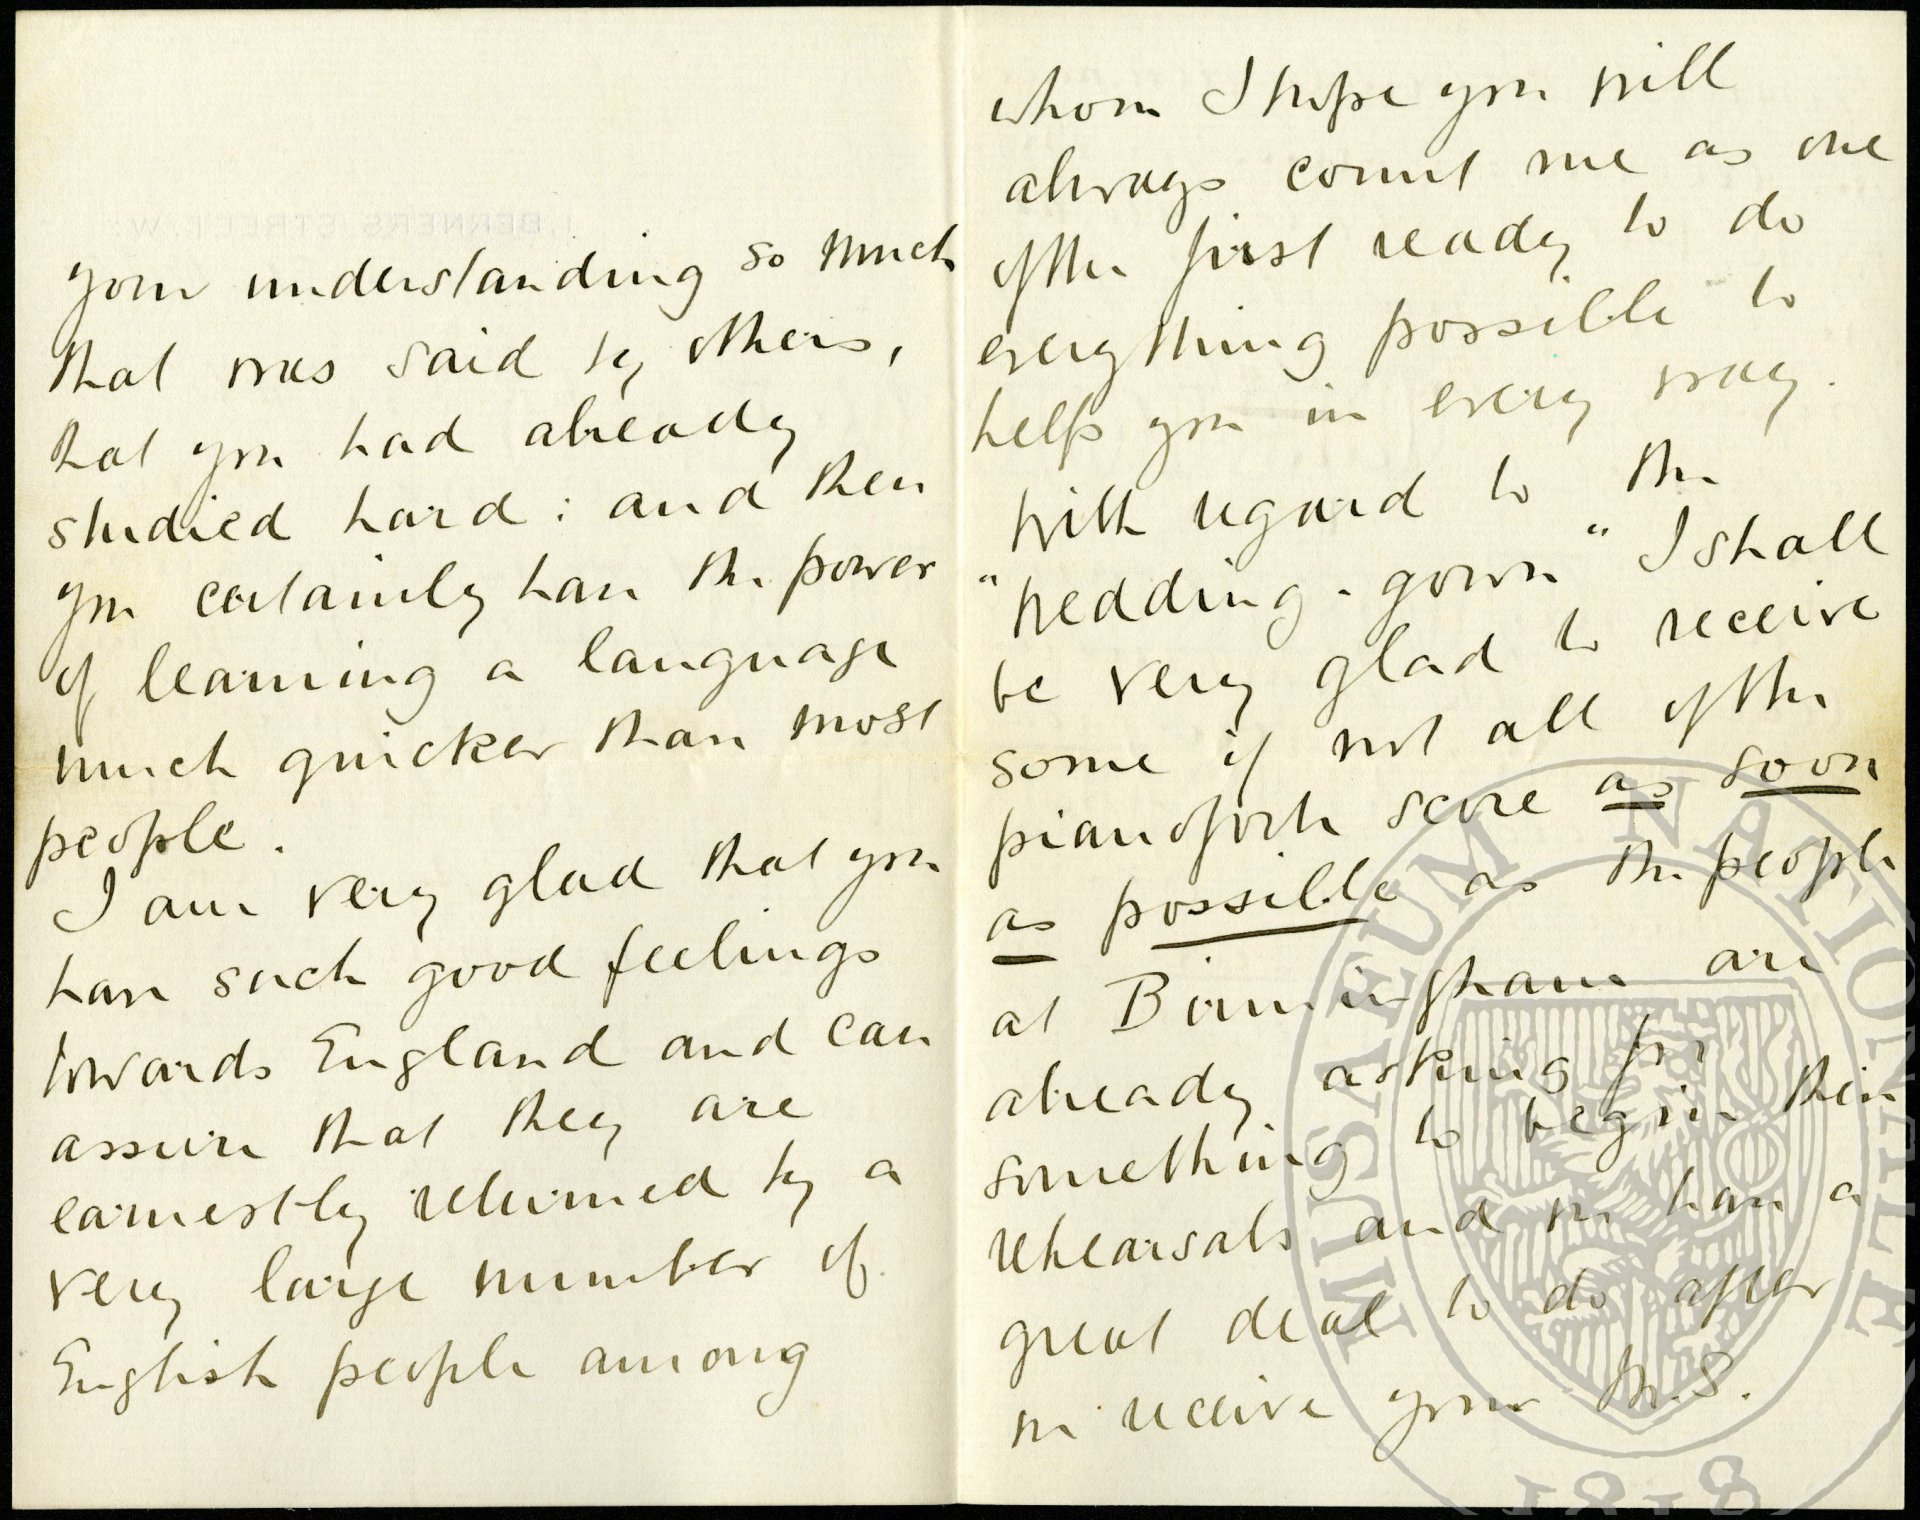 1, BERNERS STREET, W.
your understanding so much
that was said by others,
that you had already
studied hard: and then
you certainly have the power
of learning a language
much quicker than most
people.
I am very glad that you
have such good feelings
towards England and can
assure that they are
earnestly returned by a
very large number of
English people among
whom I hope you will
always count me as one
of the first ready to do
everything possible to
help you in every way.
With regard to the
"Wedding-gown" I shall
be very glad to receive
some if not all of the
pianoforte score as soon
as possible as the people
at Birmingham are
already asking for
something to begin their
rehearsals and we have a
great deal to do after
we receive your M.S.
MUSAEUM NATIONALE
1818